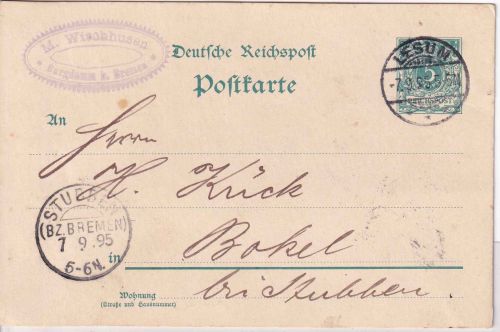 M. Wischhusen
Burgdamm b. Bremen
Deutsche Reichspost
Postkarte
LESUM
7.9.95
5
REICHSPOST
An
Herrn
H. Kück
STUBBEN
(BZ. BREMEN)
7 9.95
5-6N.
in
Bokel
bei Stubben.
Wohnung
(Straße und Hausnummer)